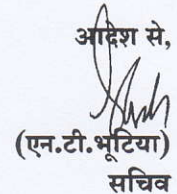 आदेश से,
(एन.टी.भूटिया)
सचिव